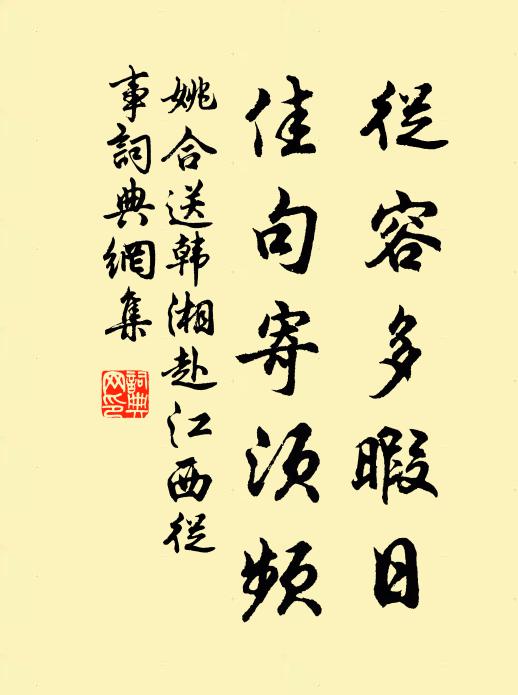 從容多暇日
佳句寄須頻
姚合送韩湘赴江西從
事詞典網集
詞典
网印